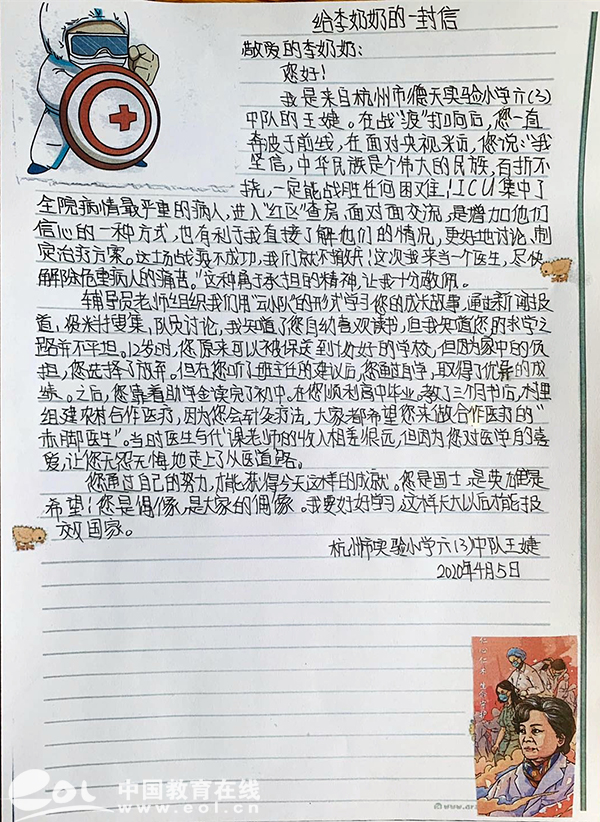 给李奶奶的一封信
敬爱的李奶奶：
您好！
我是来自杭州市德天实验小学六(3)
中队的王婕。在战"疫"打响后，您一直
奔波于前线，在面对央视采访，您说："我
坚信，中华民族是个伟大的民族，百折不
挠，一定能战胜任何困难！ICU集中了
全院病情最严重的病人，进入"红区"查房，面对面交流，是增加他们
信心的一种方式，也有利于我直接了解他们的情况，更好地讨论、制
定治疗方案。这场战役不成功，我们就不撤兵！这次我来当一个医生，尽快
解除危重病人的痛苦。"这种勇于承担的精神，让我十分敬佩。
辅导员老师组织我们用"云小队"的形式学习您的成长故事，通过新闻报
道，资料搜集，队员讨论，我知道了您自幼喜欢读书，但我知道您的求学之
路并不平坦。12岁时，您原来可以被保送到比较好的学校，但因为家中的负
担，您选择了放弃。但在您听了班主任的建议后，您通过自学，取得了优异的成
绩。之后，您靠着助学金读完了初中。在您顺利高中毕业，教了三个月书后，村里
组建农村合作医疗，因为您会针灸疗法，大家都希望您来做合作医疗的"
赤脚医生"。当时医生与代课老师的收入相差很远，但因为您对医学的喜
爱，让您无怨无悔地走上了从医道路。
您通过自己的努力，才能获得今天这样的成就。您是国士，是英雄是
希望！您是偶像，是大家的偶像。我要好好学习，这样长大以后才能报
效国家。
杭州市实验小学六(3)中队王婕
2020年4月5日
仁心仁术
中国教育在线
eol
www.eol.cn